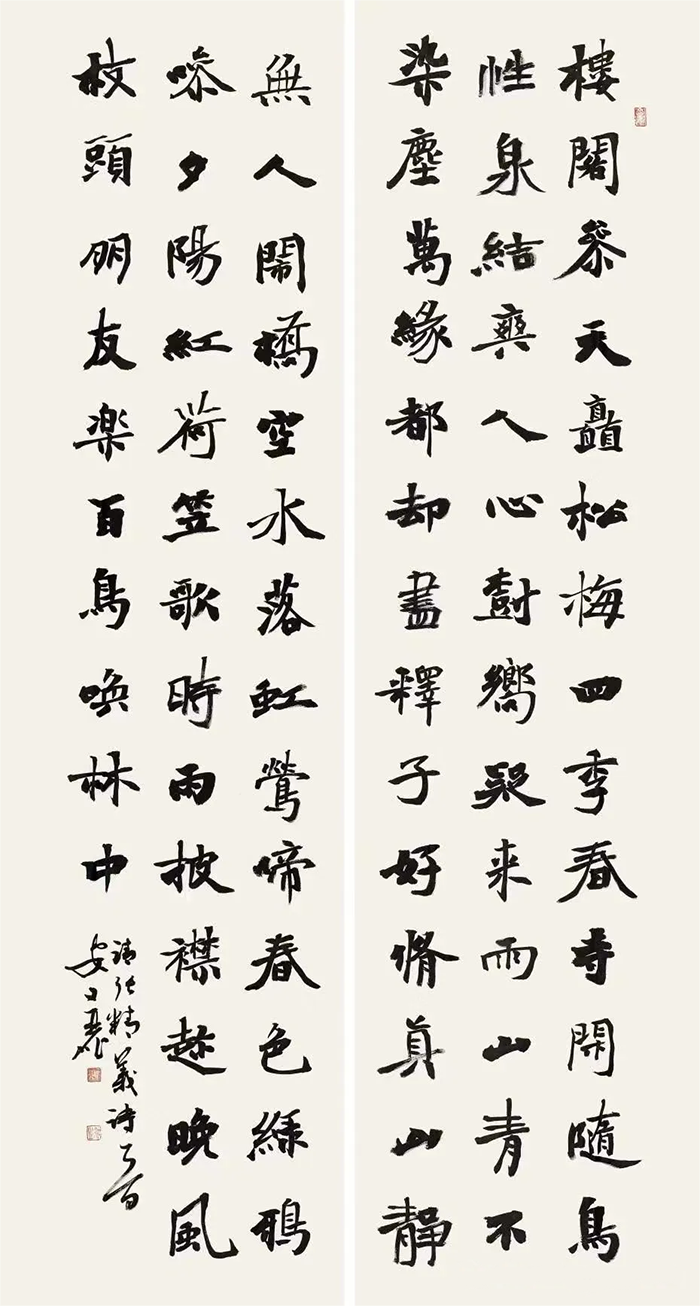 樓閣參天矗松梅四季春寺閑隨鳥
性泉結與人心樹嚮疑来雨山青不
染塵萬緣都却盡釋子好脩真山靜
無人鬧橋空水落虹鶯啼春色綠鴉
噪夕陽紅荷笠歌時雨披襟趁晚風
枝頭朋友楽百鳥喚林中
清張精義詩二首